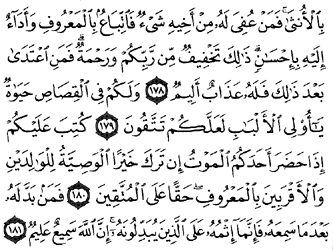 بِٱلْأُنثَىٰ ۚ فَمَنْ عُفِىَ لَهُۥ مِنْ أَخِيهِ شَىْءٌ فَٱتِّبَاعٌۢ بِٱلْمَعْرُوفِ وَأَدَآءٌ
إِلَيْهِ بِإِحْسَٰنٍ ۗ ذَٰلِكَ تَخْفِيفٌ مِّن رَّبِّكُمْ وَرَحْمَةٌ ۗ فَمَنِ ٱعْتَدَىٰ
بَعْدَ ذَٰلِكَ فَلَهُۥ عَذَابٌ أَلِيمٌ ١٧٨ وَلَكُمْ فِى ٱلْقِصَاصِ حَيَوٰةٌ
يَٰٓأُو۟لِى ٱلْأَلْبَٰبِ لَعَلَّكُمْ تَتَّقُونَ ١٧٩ كُتِبَ عَلَيْكُمْ
إِذَا حَضَرَ أَحَدَكُمُ ٱلْمَوْتُ إِن تَرَكَ خَيْرًا ٱلْوَصِيَّةُ لِلْوَٰلِدَيْنِ
وَٱلْأَقْرَبِينَ بِٱلْمَعْرُوفِ ۖ حَقًّا عَلَى ٱلْمُتَّقِينَ ١٨٠ فَمَنۢ بَدَّلَهُۥ
بَعْدَمَا سَمِعَهُۥ فَإِنَّمَآ إِثْمُهُۥ عَلَى ٱلَّذِينَ يُبَدِّلُونَهُۥٓ ۚ إِنَّ ٱللَّهَ سَمِيعٌ عَلِيمٌ ١٨١